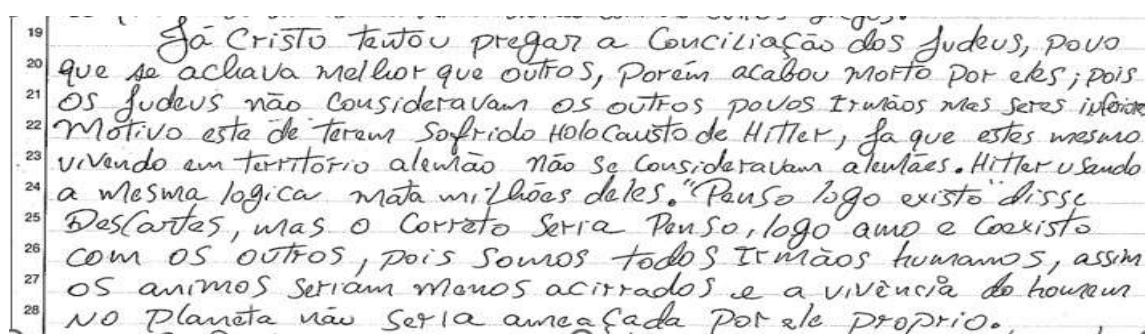 19 Já Cristo tentou pregar a Conciliação dos Judeus, povo
20 que se achava melhor que outros, Porém acabou morto por eles; pois
21 os Judeus não consideravam os outros povos Irmãos mas seres inferiores
22 Motivo este de terem Sofrido Holocausto de Hitler, Ja que estes mesmo
23 vivendo em território alemão não se consideravam alemães. Hitler usando
24 a mesma logica mata milhões deles. "Penso logo existo" disse
25 Descartes, mas o Correto Seria Penso, logo amo e Coexisto
26 com os outros, pois somos todos Irmãos humanos, assim
27 os animos seriam menos acirrados e a vivência do homem
28 no Planeta não seria ameaçada por ele proprio.